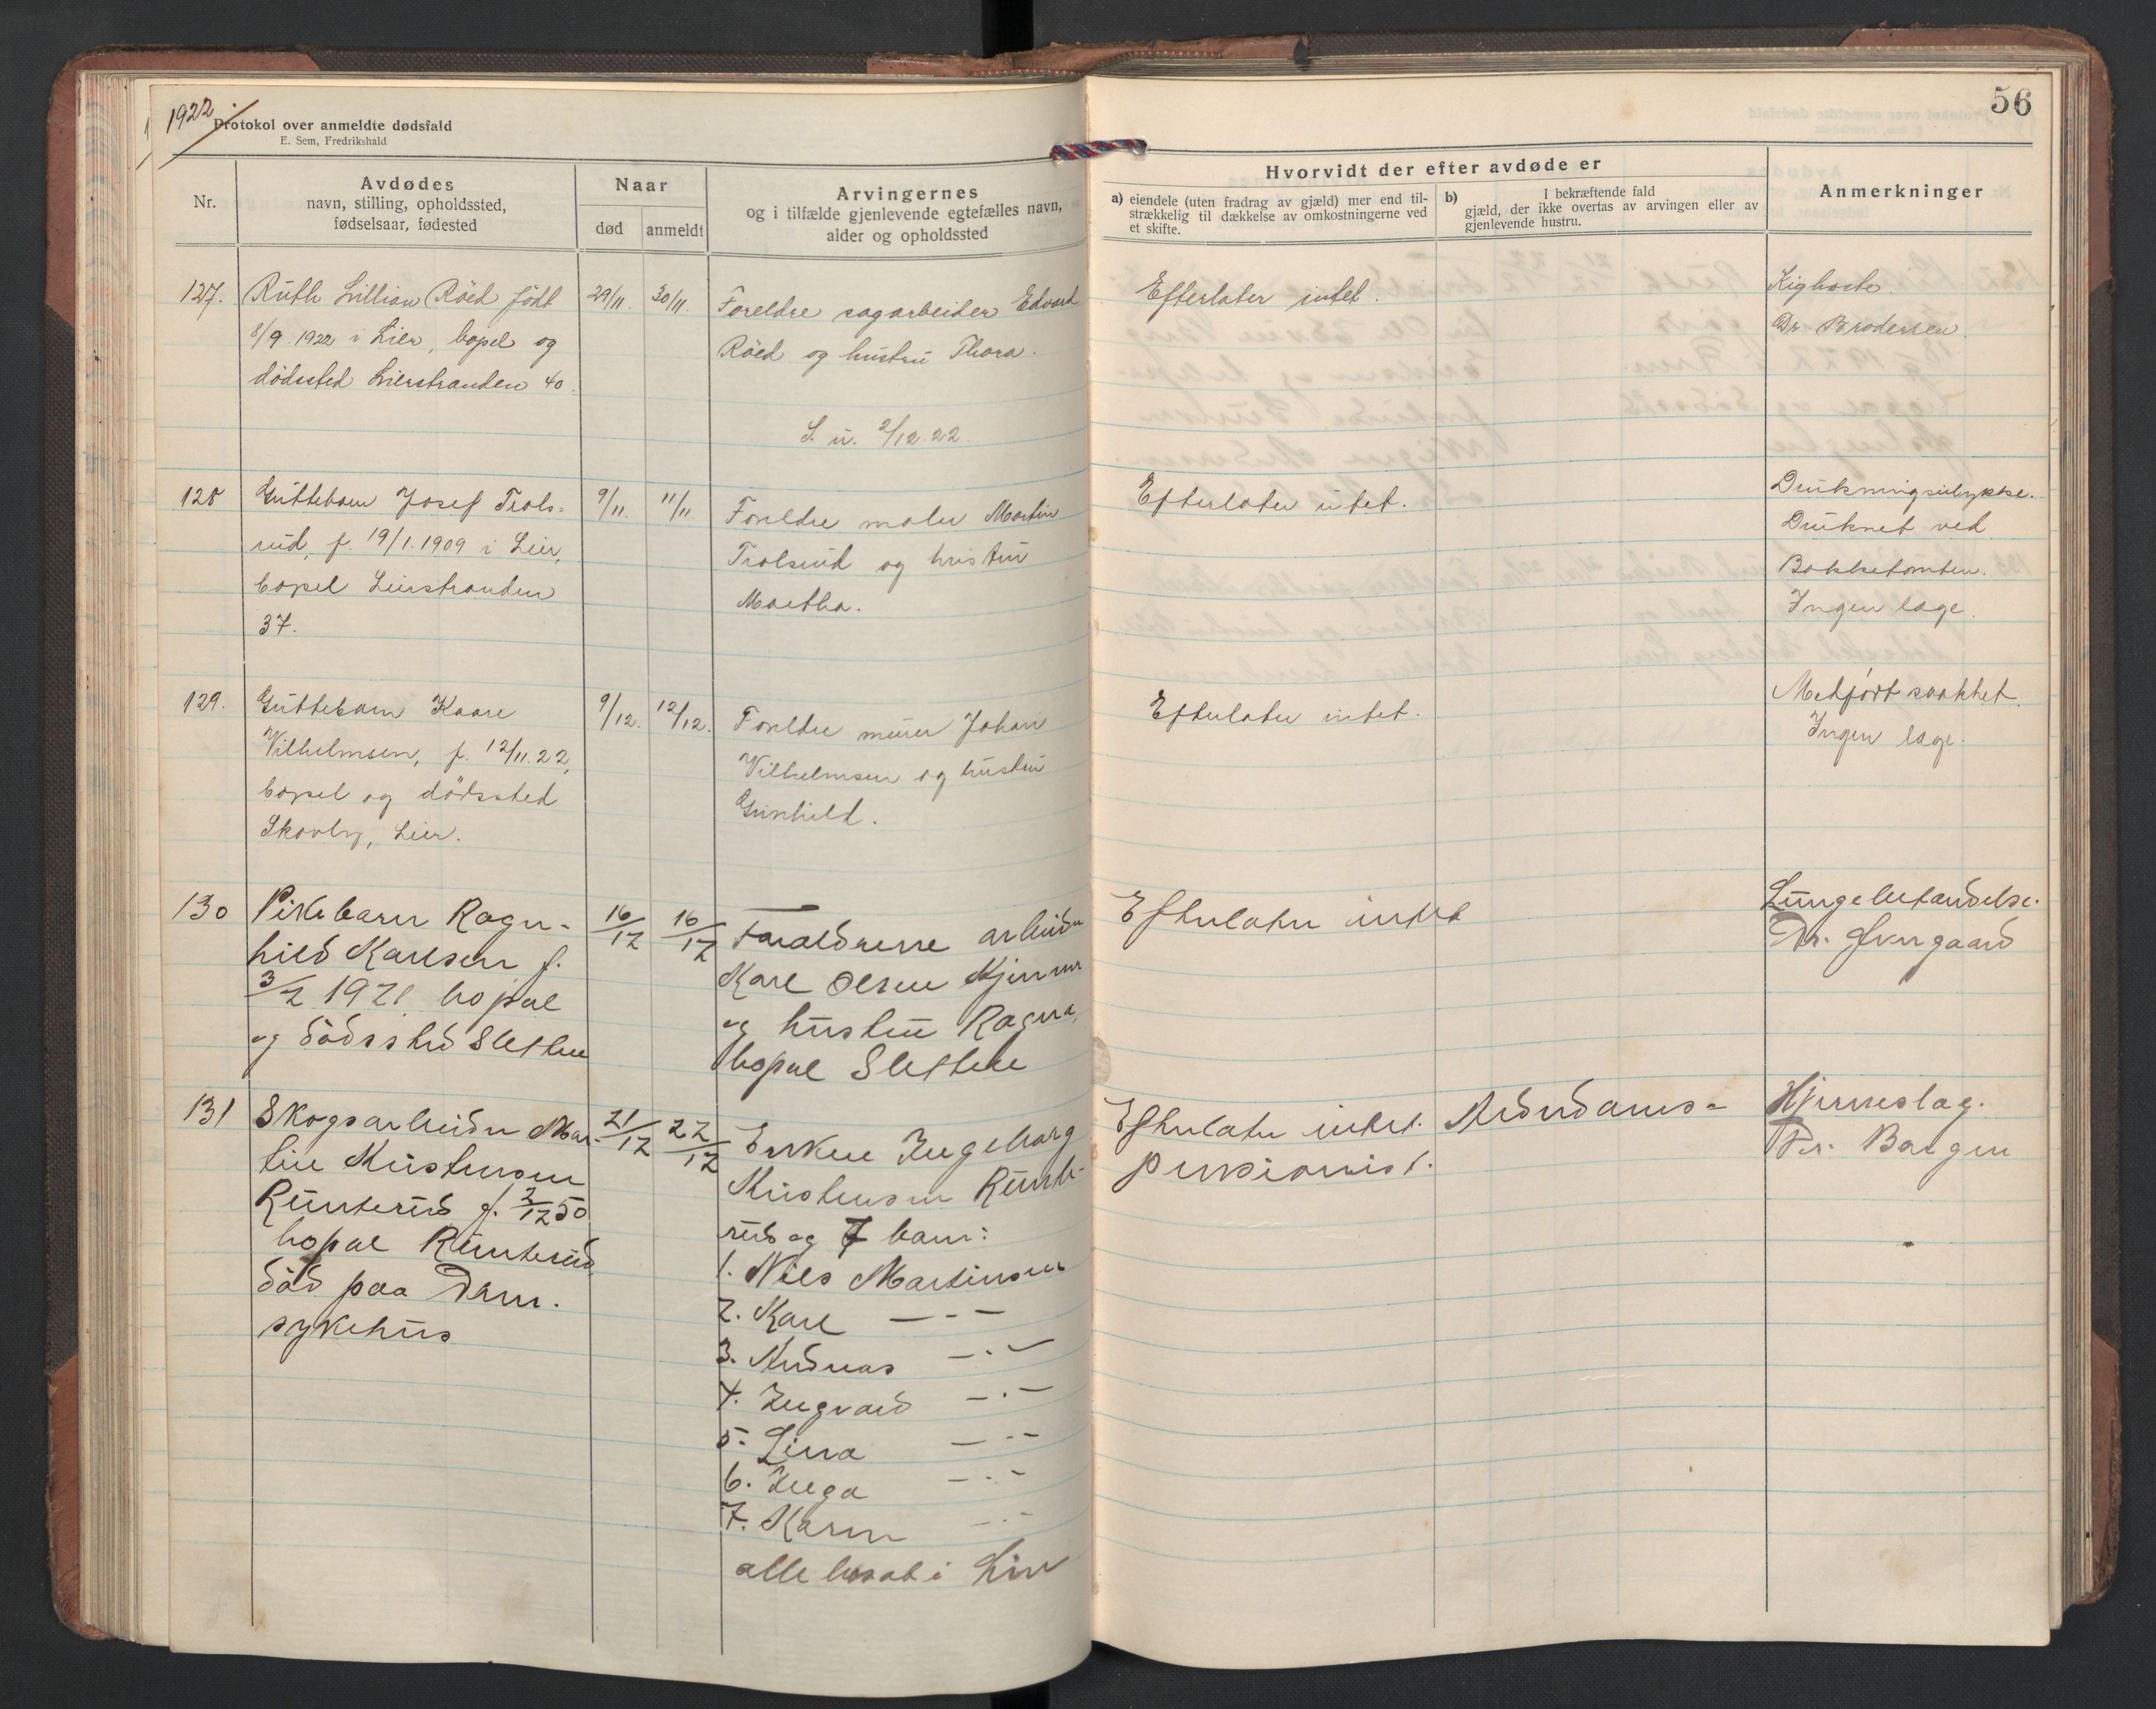 1922
Protokol over anmeldte dødsfald
E. Sem, Fredrikshald
56
Nr.
Avdødes
navn, stilling, opholdssted,
fødselsaar, fødested
Naar
død
anmeldt
Arvingernes
og i tilfælde gjenlevende egtefælles navn,
alder og opholdssted
Hvorvidt der efter avdøde er
a) eiendele (uten fradrag av gjæld) mer end til-
strækkelig til dækkelse av omkostningerne ved
et skifte.
b) I bekræftende fald
gjæld, der ikke overtas av arvingen eller av
gjenlevende hustru.
Anmerkninger
127.
Ruth Lillian Röed födt
8/9 1922 i Lier, bopel og
dödssted Lierstranden 40.
29/11.
30/11.
Foreldre sagarbeider Edvard
Röed og hustru Thora.
S. u. 2/12.22.
Efterlater intet.
Kighoste.
Dr. Brodersen.
128
Guttebarn Josef Trols-
rud, f. 19/1.1909 i Lier,
bopel Lierstranden
37.
9/11.
11/11.
Foreldre maler Martin
Trolsrud og hustru
Martha.
Efterlater intet.
Drukningsulykke.
Druknet ved
Bakketomten.
Ingen læge.
129.
Guttebarn Kaare
Vilhelmsen, f. 12/11.22,
bopel og dödssted
Skovly, Lier.
9/12.
12/12.
Foreldre murer Johan
Vilhelmsen og hustru
Gunhild.
Efterlater intet.
Medfödt svakhet.
Ingen læge.
130
Pikebarn Ragn-
hild Karlsen f.
3/2 1921 bopæl
og dödssted Sletten
16/12
16/12
Forældrene arbeider
Karl Olsen
og hustru Ragna,
bopæl Sletten
Efterlater intet
Lungebetændelse.
Dr.
131
Skogsarbeider Mar-
tin Kristensen
Runterud f. 2/12 50
bopæl Runterud
död paa Drm.
sykehus
21/12
22/12
Enken Ingeborg
Kristensen Runte-
rud og 7 barn:
1. Nils Martinsen
2. Karl — " —
3. Andreas — " —
4. Ingvald — " —
5. Lina — " —
6. Inga — " —
7. Karen — " —
alle bosat i Lier
Efterlater intet.
pensionist.
Hjerneslag.
Dr. Borgen